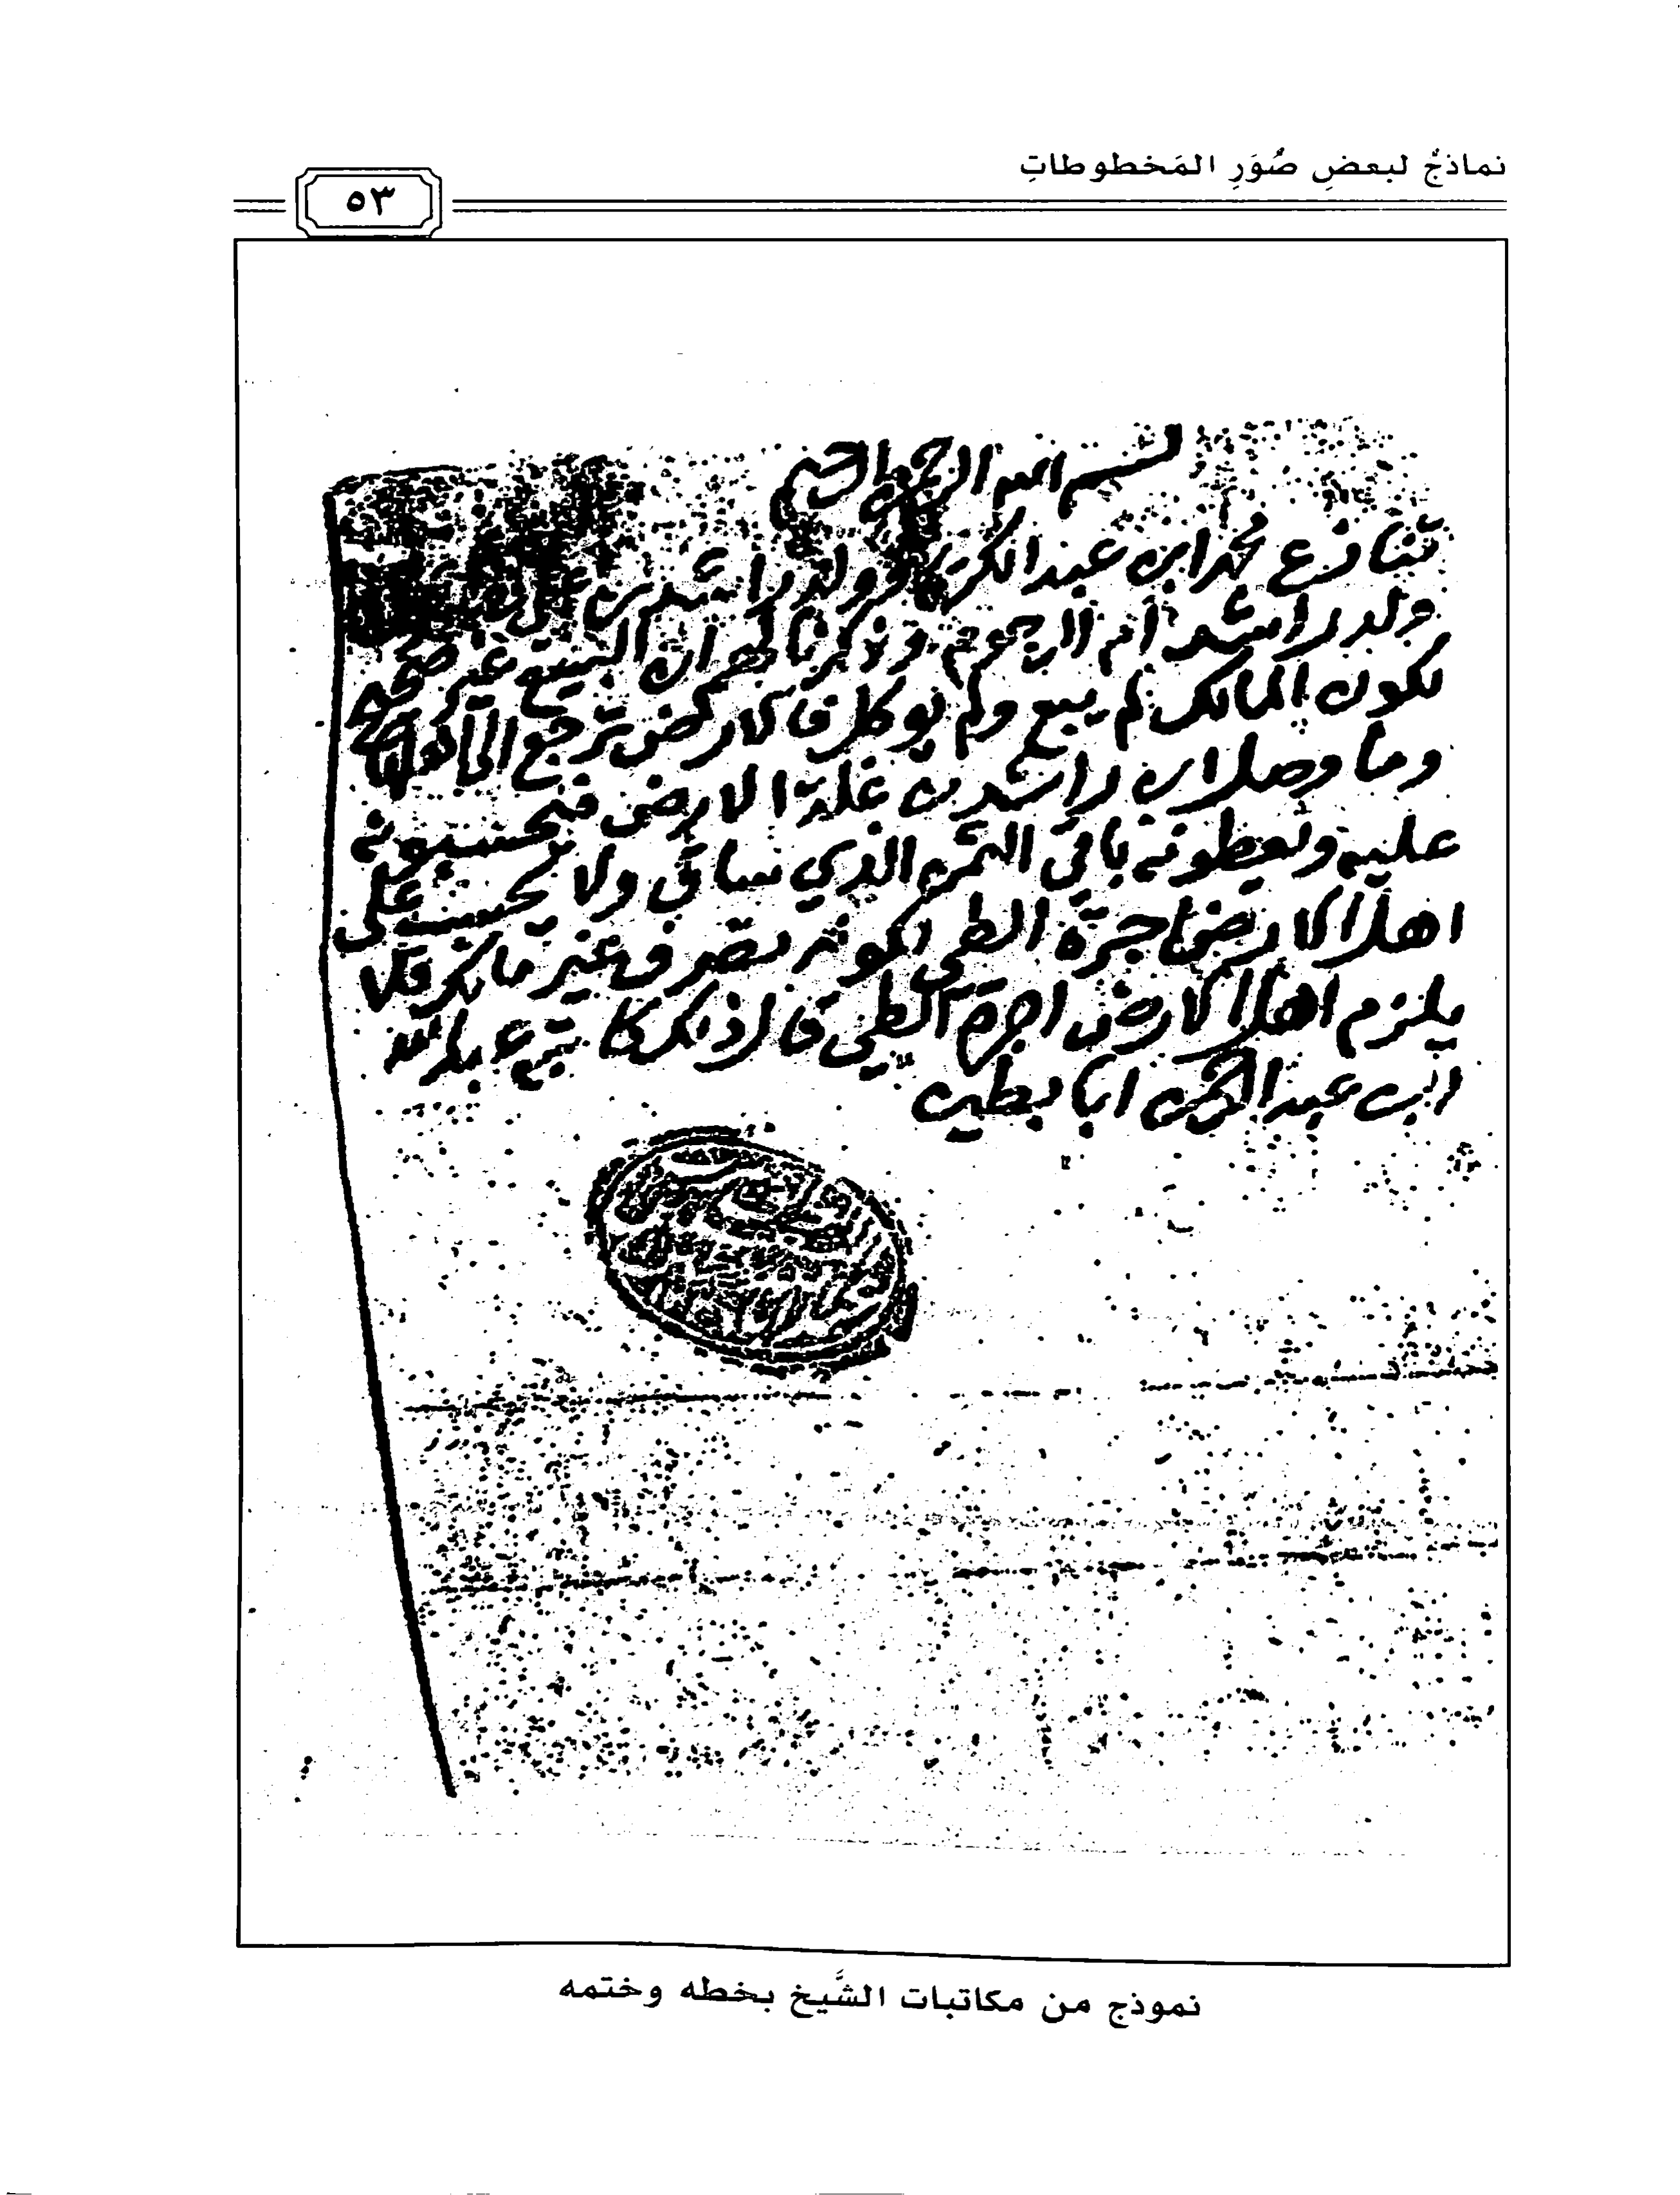 نماذجُ لبعضِ صُوَرِ المَخطوطاتِ
٥٣
بسم الله الرحمن الرحيم
تنازع محمد ابن عبد الكريم وولد راشد
ولد راشد وذكرنا لهم ان البيع غير صحيح
لكون المالك لم يبيع ولم يوكل فالارض ترجع الى
وما وصل ابن راشد من غلة الارض فيحسبونه
عليه ويعطونه باقي الثمن الذي ساق ولا يحسب على
اهل الارض اجرة الطي لكونه تصرف غير مالك فلا
يلزم اهل الارض اجرة الطي قال ذلك كاتبه عبد الله
ابن عبد الرحمن ابا بطين
نموذج من مكاتبات الشَّيخ بخطه وختمه